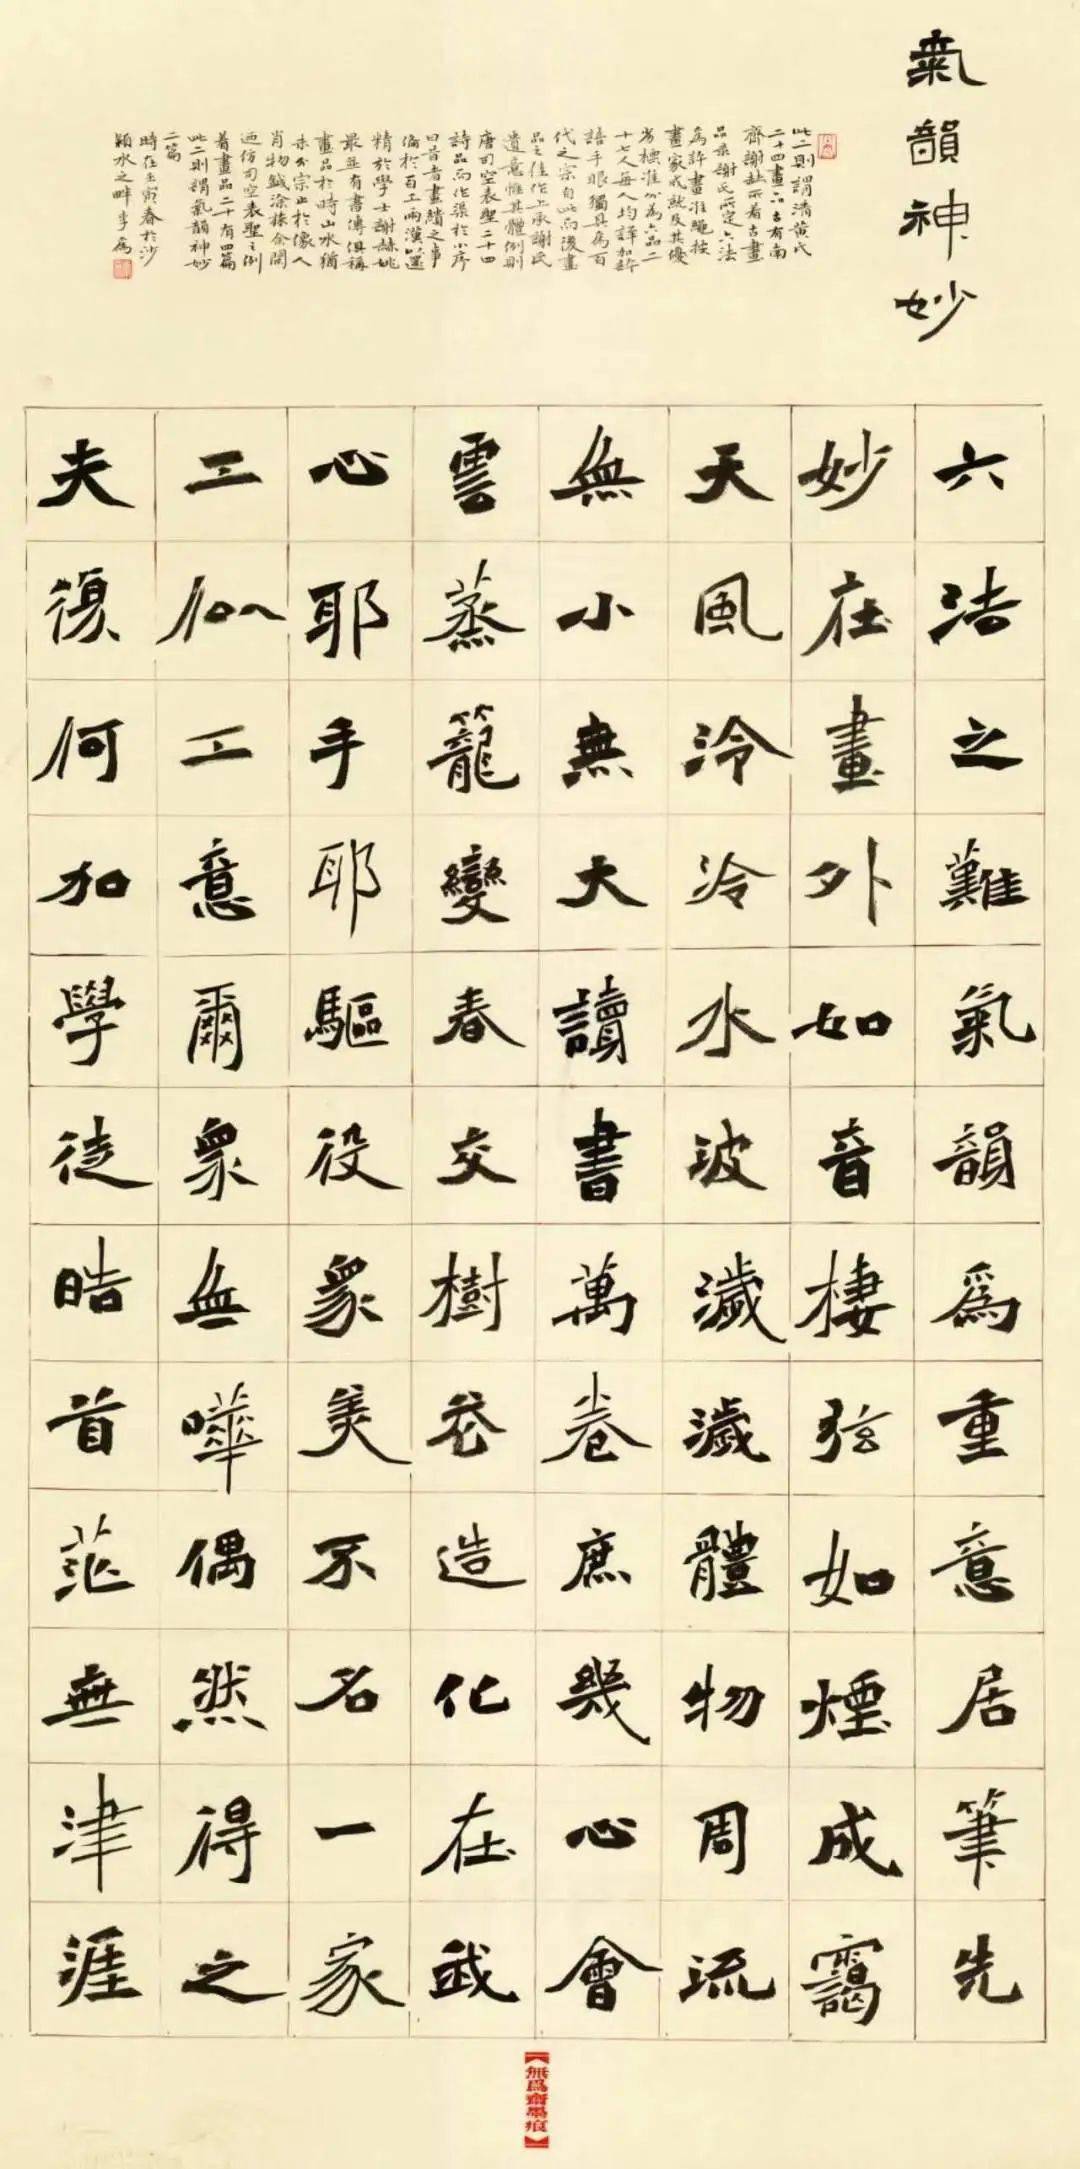 氣韻神妙
此二則謂清黃氏
二十四畫六古有南
齊謝赫所著古畫
品录謝氏所定六法
為許畫准繩按
畫家成就及其優
劣標准分為六品二
十七人每人均詳加評
語手眼獨具為百
代之宗自此而後畫
品之佳作上承謝氏
遺意惟其體例則
唐司空表聖二十四
詩品而作渠於小序
曰昔者畫繢之事
備於百工兩漢以還
精於學士謝赫姚
最並有書傳俱稱
畫品於時山水猶
未分宗止於像人
肖物鉞涂抹余閑
迺仿司空表聖之例
著畫品二十有四篇
此二則謂氣韻神妙
二篇
時在壬寅春於沙
穎水之畔李為
六法之難氣韻爲重意居筆先
妙在畫外如音棲弦如煙成靄
天風泠泠水波濊濊體物周流
無小無大讀書萬卷庶幾心會
雲蒸龍變春交樹花造化在我
心耶手耶驅役眾美不名一家
工似工意爾眾無嘩偶然得之
夫復何加學徒皓首茫無津涯
【無爲齋墨痕】